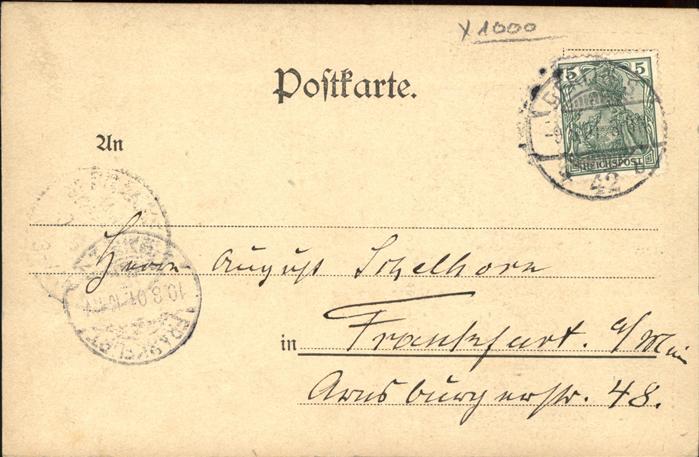 X1000
Postkarte.
5 5
REICHSPOST
42
An
Herrn August Schelhorn
in Frankfurt. a/Main
Arnsburgerstr. 48.
FRANKFURT